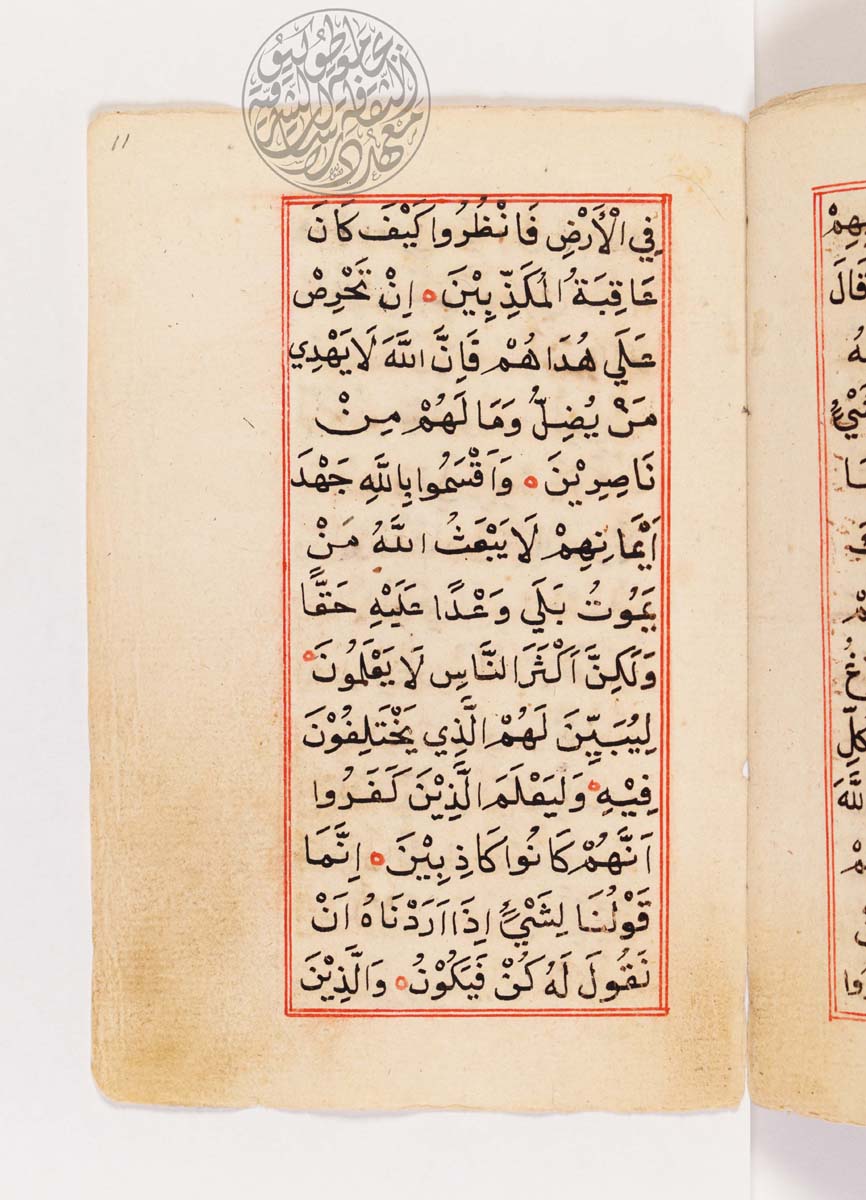 11
فِي الْأَرْضِ فَانْظُرُوا كَيْفَ كَانَ
عَاقِبَةُ الْمُكَذِّبِيْنَ ه اِنْ تَحْرِصْ
عَلَي هُدَاهُمْ فَاِنَّ اللَّهَ لَا يَهْدِي
مَنْ يُضِلُّ وَمَا لَهُمْ مِنْ
نَاصِرِيْنَ ه وَاَقْسَمُوا بِاللَّهِ جَهْدَ
اَيْمَانِهِمْ لَا يَبْعَثُ اللَّهُ مَنْ
يَمُوتُ بَلَي وَعْدًا عَلَيْهِ حَقًّا
وَلَكِنَّ اَكْثَرَ النَّاسِ لَا يَعْلَمُونَ ه
لِيُبَيِّنَ لَهُمُ الَّذِي يَخْتَلِفُوْنَ
فِيْهِ ه وَلِيَعْلَمَ الَّذِيْنَ كَفَرُوا
اَنَّهُمْ كَانُوا كَاذِبِيْنَ ه اِنَّمَا
قَوْلُنَا لِشَيْءٍ اِذَا اَرَدْنَاهُ اَنْ
نَقُولَ لَهُ كُنْ فَيَكُوْنُ ه وَالَّذِيْنَ